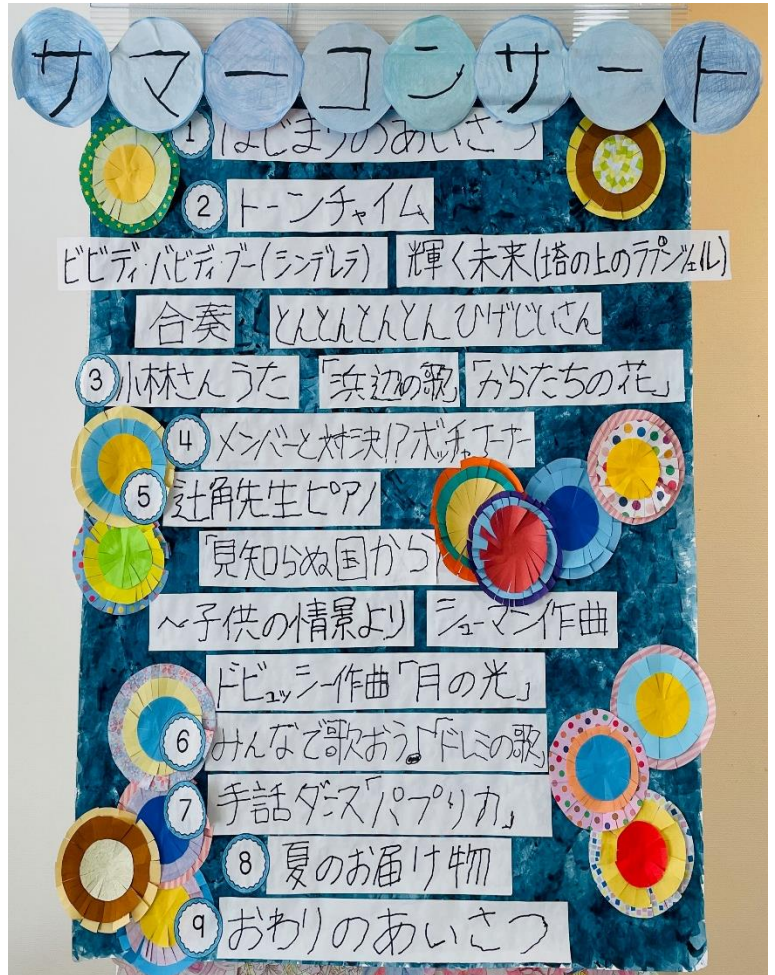 サマーコンサート
1 はじまりのあいさつ
2 トーンチャイム
ビビディ・バビディ・ブー(シンデレラ) 輝く未来(塔の上のラプンツェル)
合奏 とんとんとんとんひげじいさん
3 小林さんうた 「浜辺の歌」 「からたちの花」
4 メンバーと対決!?ボッチャコーナー
5 辻角先生ピアノ
「見知らぬ国から」
～子供の情景より シューマン作曲
ドビュッシー作曲「月の光」
6 みんなで歌おう♪「ドレミの歌」
7 手話ダンス「パプリカ」
8 夏のお届け物
9 おわりのあいさつ